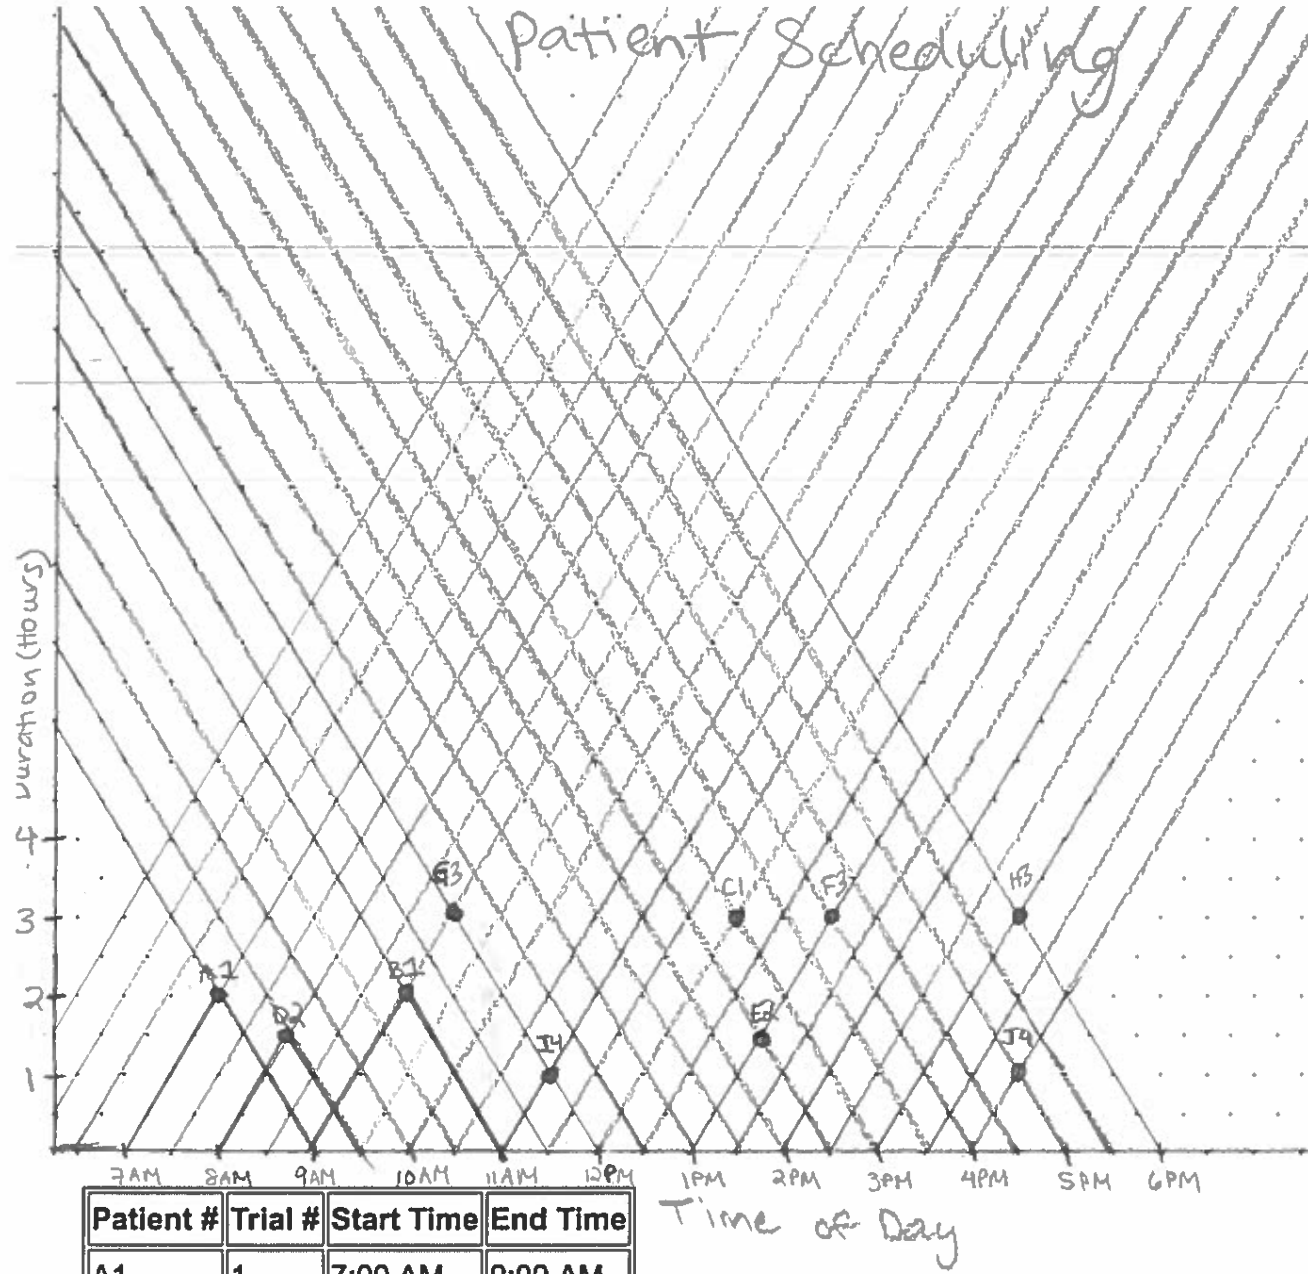 Patient Scheduling
Duration (Hours)
4
3
2
1
G3
C1
F3
H3
A1
B1
D2
E2
I4
J4
7AM 8AM 9AM 10AM 11AM 12PM 1PM 2PM 3PM 4PM 5PM 6PM
Time of Day
Patient # Trial # Start Time End Time
A1 1 7:00 AM 9:00 AM